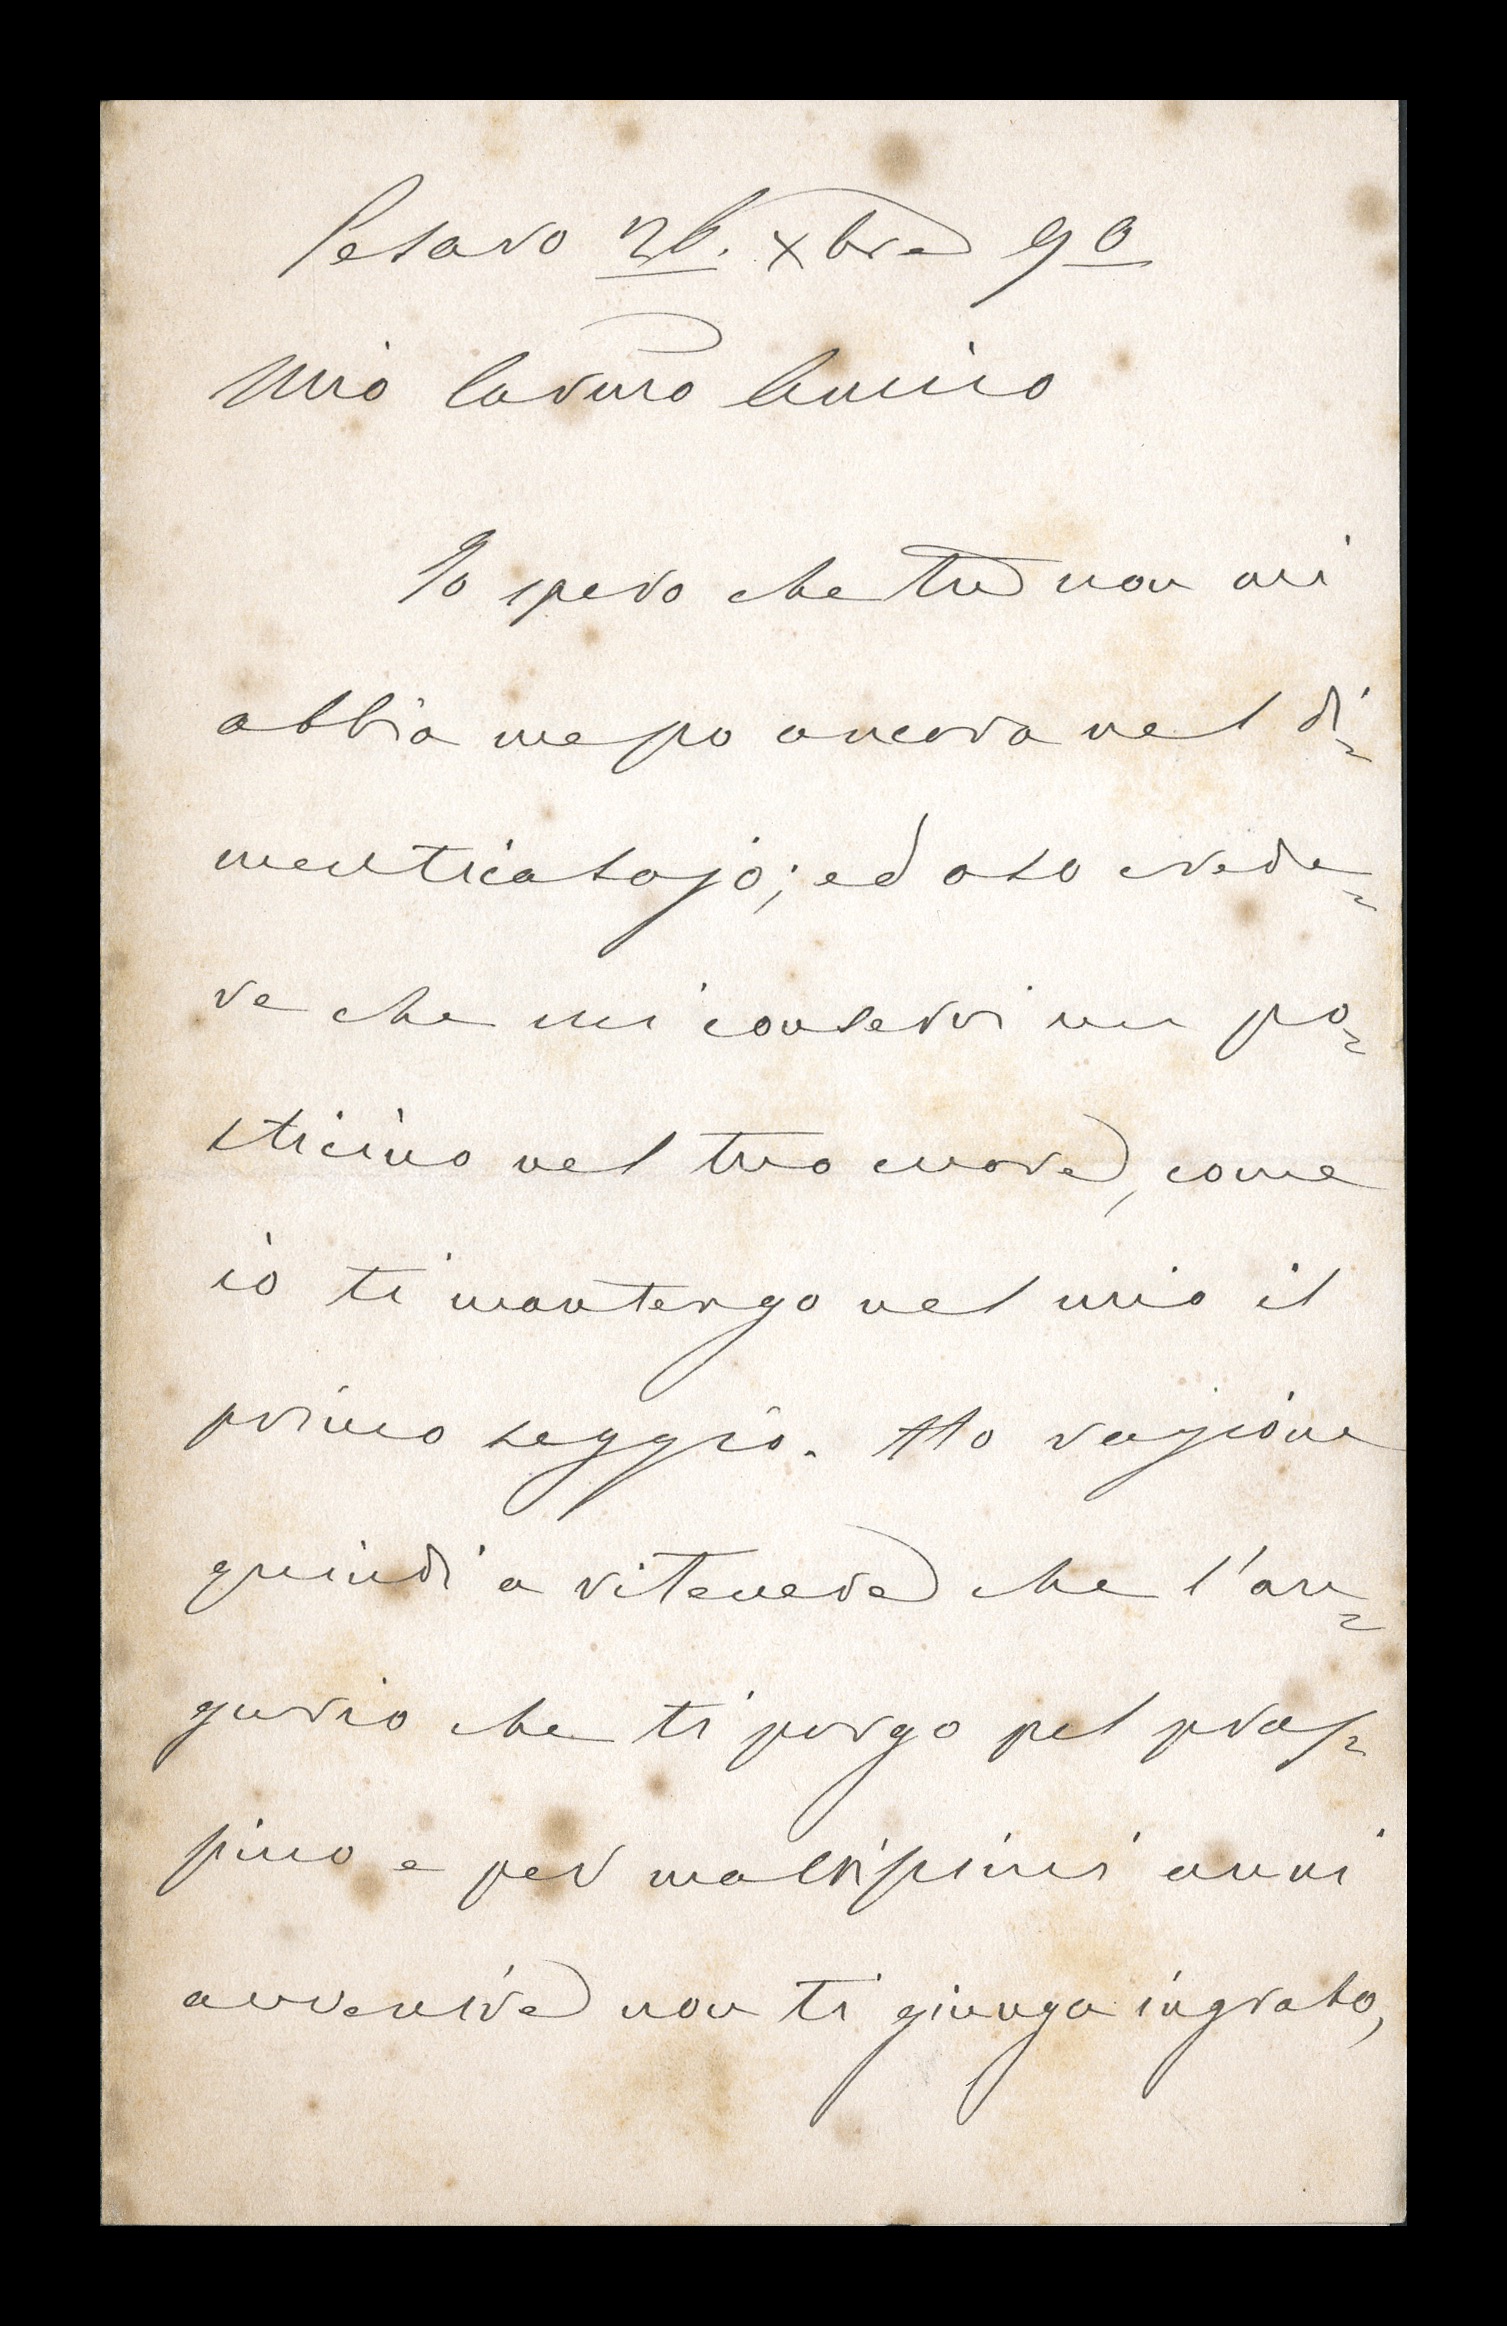 Pesaro 26. Xbre 90
Mio Carmo Amico
Io spero che tu non mi
abbia messo ancora nel di=
menticatojo; ed oso crede=
re che mi conservi un po=
sticino nel tuo cuore, come
io ti mantengo nel mio il
primo seggio. Ho ragione
quindi a ritenere che l'au=
gurio che ti porgo pel pros=
simo e per moltissimi anni
avvenire non ti giunga ingrato,